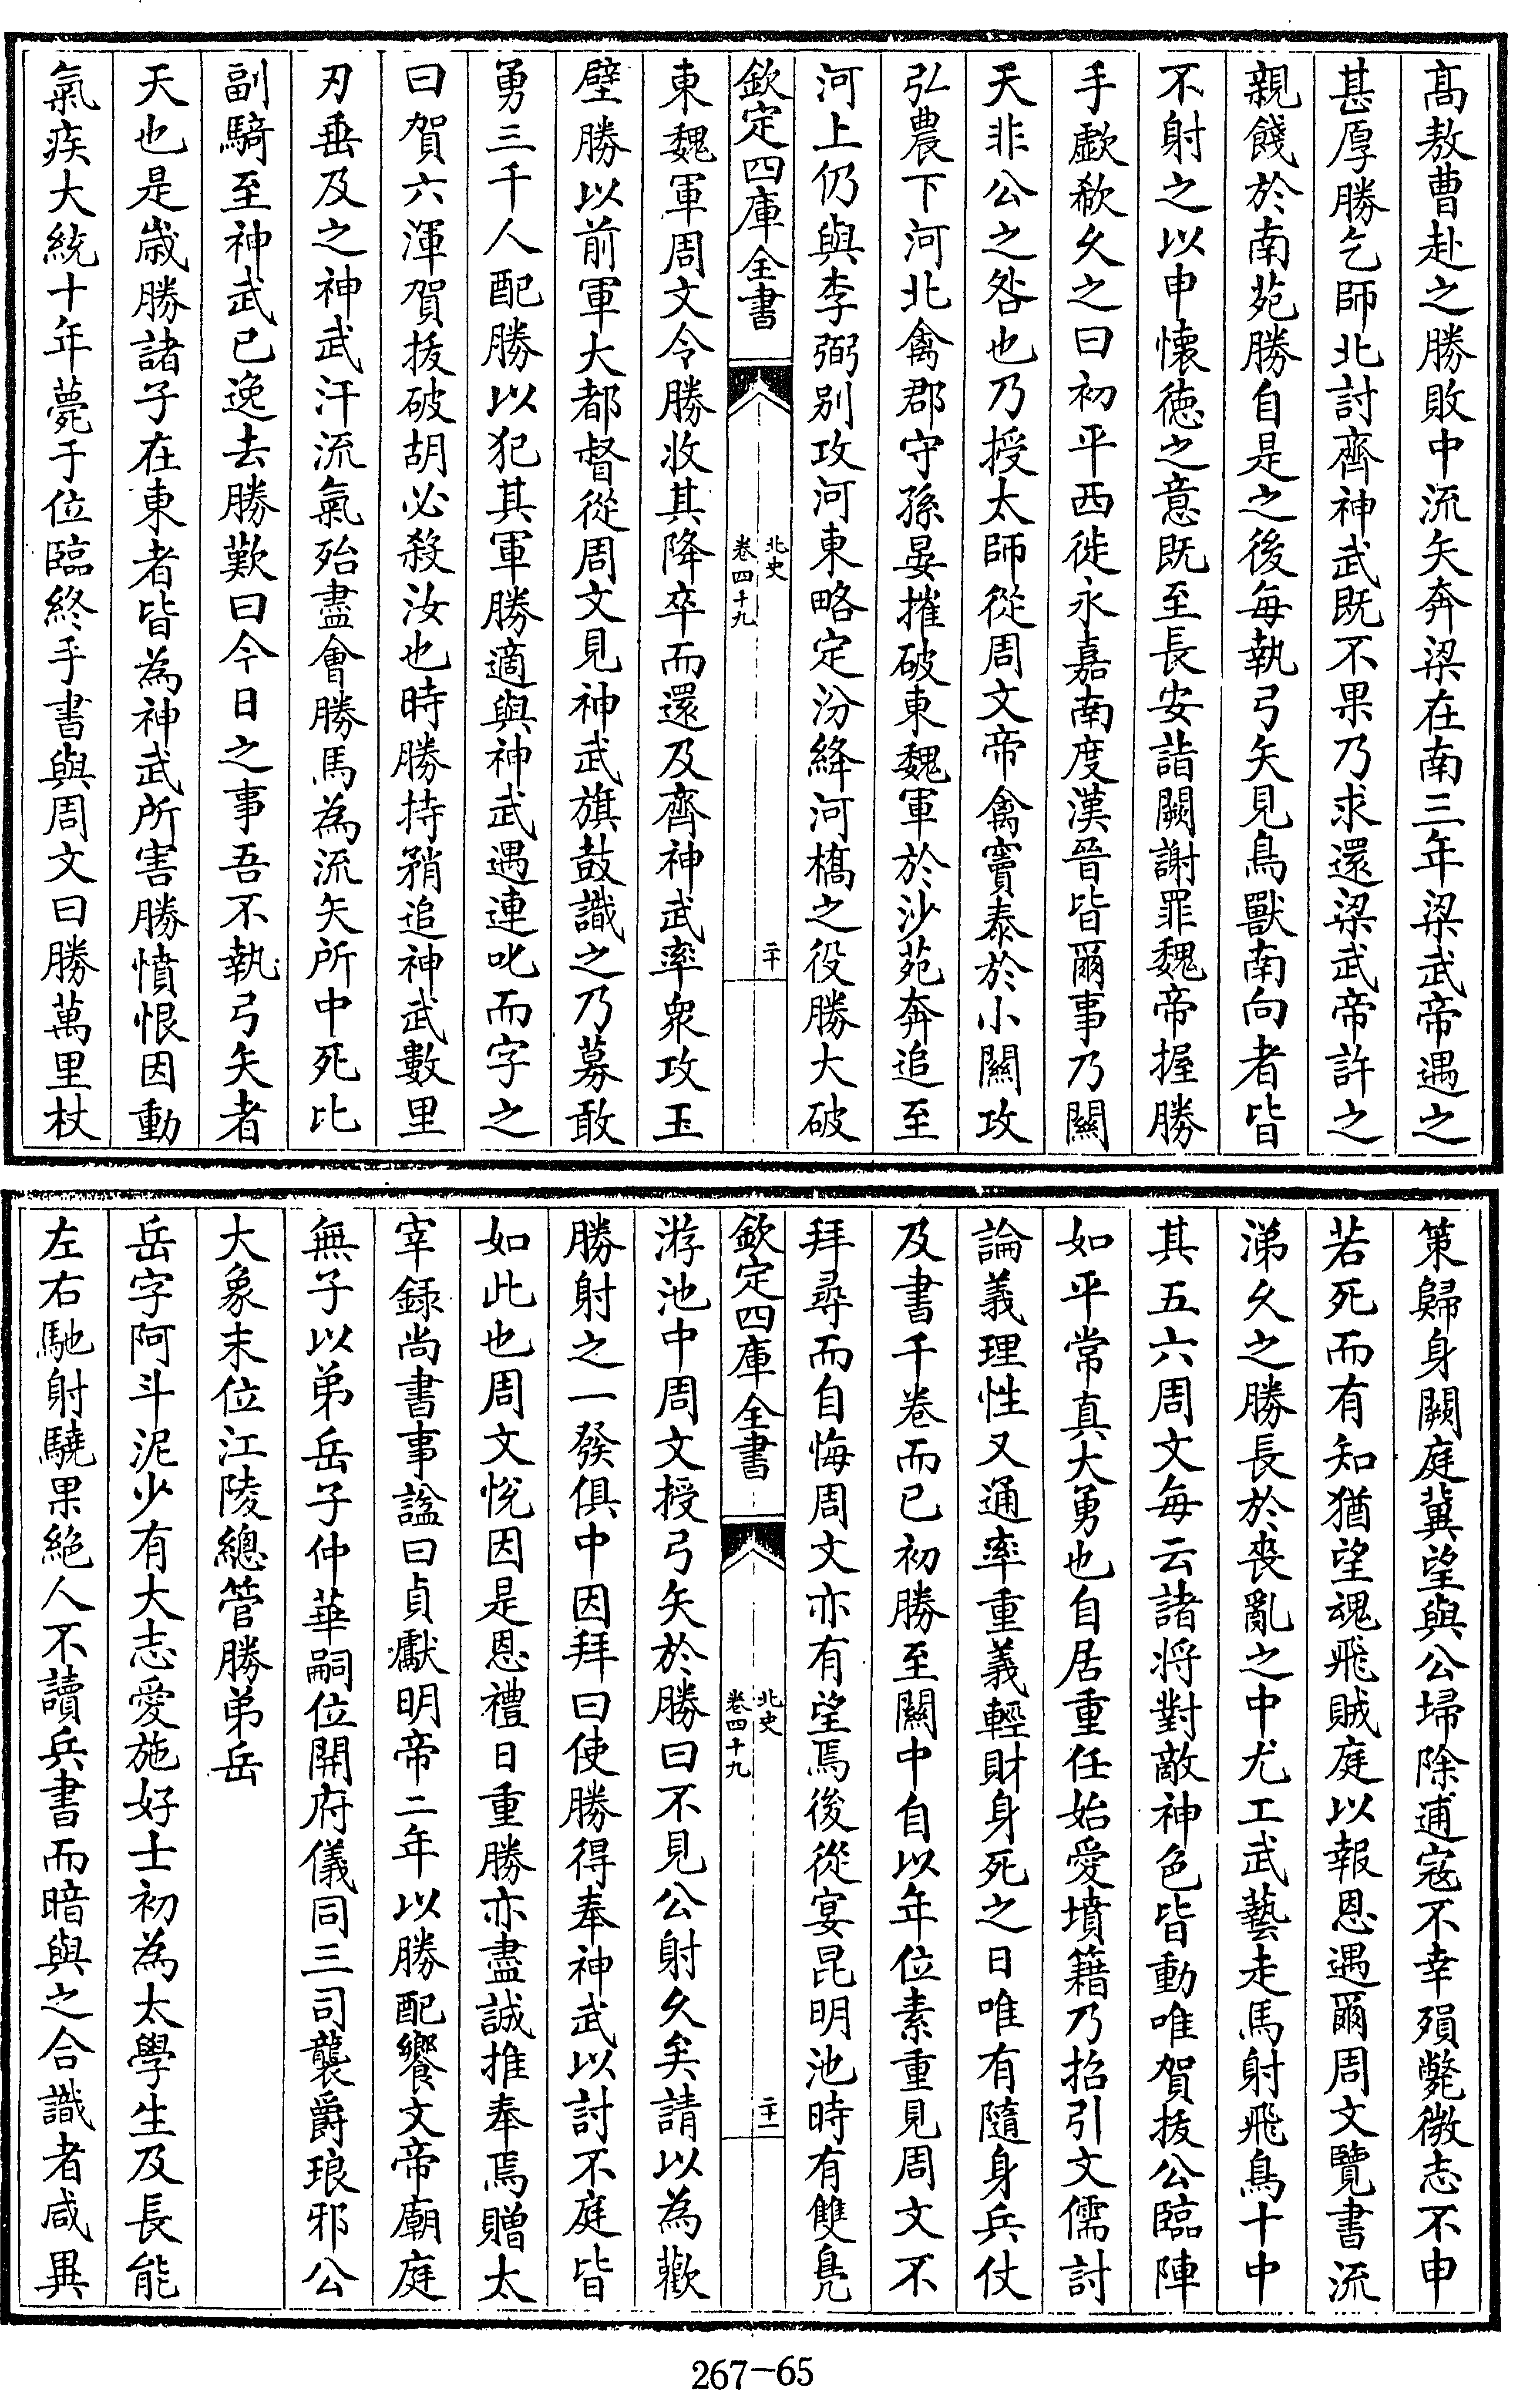 髙敖曹赴之勝敗中流矢奔梁在南三年梁武帝遇之
甚厚勝乞師北討齊神武既不果乃求還梁武帝許之
親餞於南苑勝自是之後每執弓矢見鳥獸南向者皆
不射之以申懐徳之意既至長安詣闕謝罪魏帝握勝
手歔欷久之曰初平西徙永嘉南度漢晉皆爾事乃關
天非公之咎也乃授太師從周文帝禽竇泰於小關攻
弘農下河北禽郡守孫晏摧破東魏軍於沙苑奔追至
河上仍與李弼别攻河東略定汾絳河橋之役勝大破
欽定四庫全書
北史
卷四十九
二十
東魏軍周文令勝收其降卒而還及齊神武率衆攻玉
壁勝以前軍大都督從周文見神武旗鼓識之乃募敢
勇三千人配勝以犯其軍勝適與神武遇連叱而字之
曰賀六渾賀拔破胡必殺汝也時勝持矟追神武數里
刃垂及之神武汗流氣殆盡會勝馬為流矢所中死比
副騎至神武已逸去勝歎曰今日之事吾不執弓矢者
天也是嵗勝諸子在東者皆為神武所害勝憤恨因動
氣疾大統十年薨于位臨終手書與周文曰勝萬里杖
策歸身闕庭冀望與公埽除逋寇不幸殞斃微志不申
若死而有知猶望魂飛賊庭以報恩遇爾周文覽書流
涕久之勝長於喪亂之中尤工武藝走馬射飛鳥十中
其五六周文每云諸將對敵神色皆動唯賀拔公臨陣
如平常真大勇也自居重任始愛墳籍乃招引文儒討
論義理性又通率重義輕財身死之日唯有隨身兵仗
及書千卷而已初勝至關中自以年位素重見周文不
拜尋而自悔周文亦有望焉後從宴昆明池時有雙鳬
欽定四庫全書
北史
卷四十九
二十一
游池中周文授弓矢於勝曰不見公射久矣請以為歡
勝射之一發俱中因拜曰使勝得奉神武以討不庭皆
如此也周文悅因是恩禮日重勝亦盡誠推奉焉贈太
宰録尚書事諡曰貞獻明帝二年以勝配饗文帝廟庭
無子以弟岳子仲華嗣位開府儀同三司襲爵琅邪公
大象末位江陵總管勝弟岳
岳字阿斗泥少有大志愛施好士初為太學生及長能
左右馳射驍果絶人不讀兵書而暗與之合識者咸異
267-65